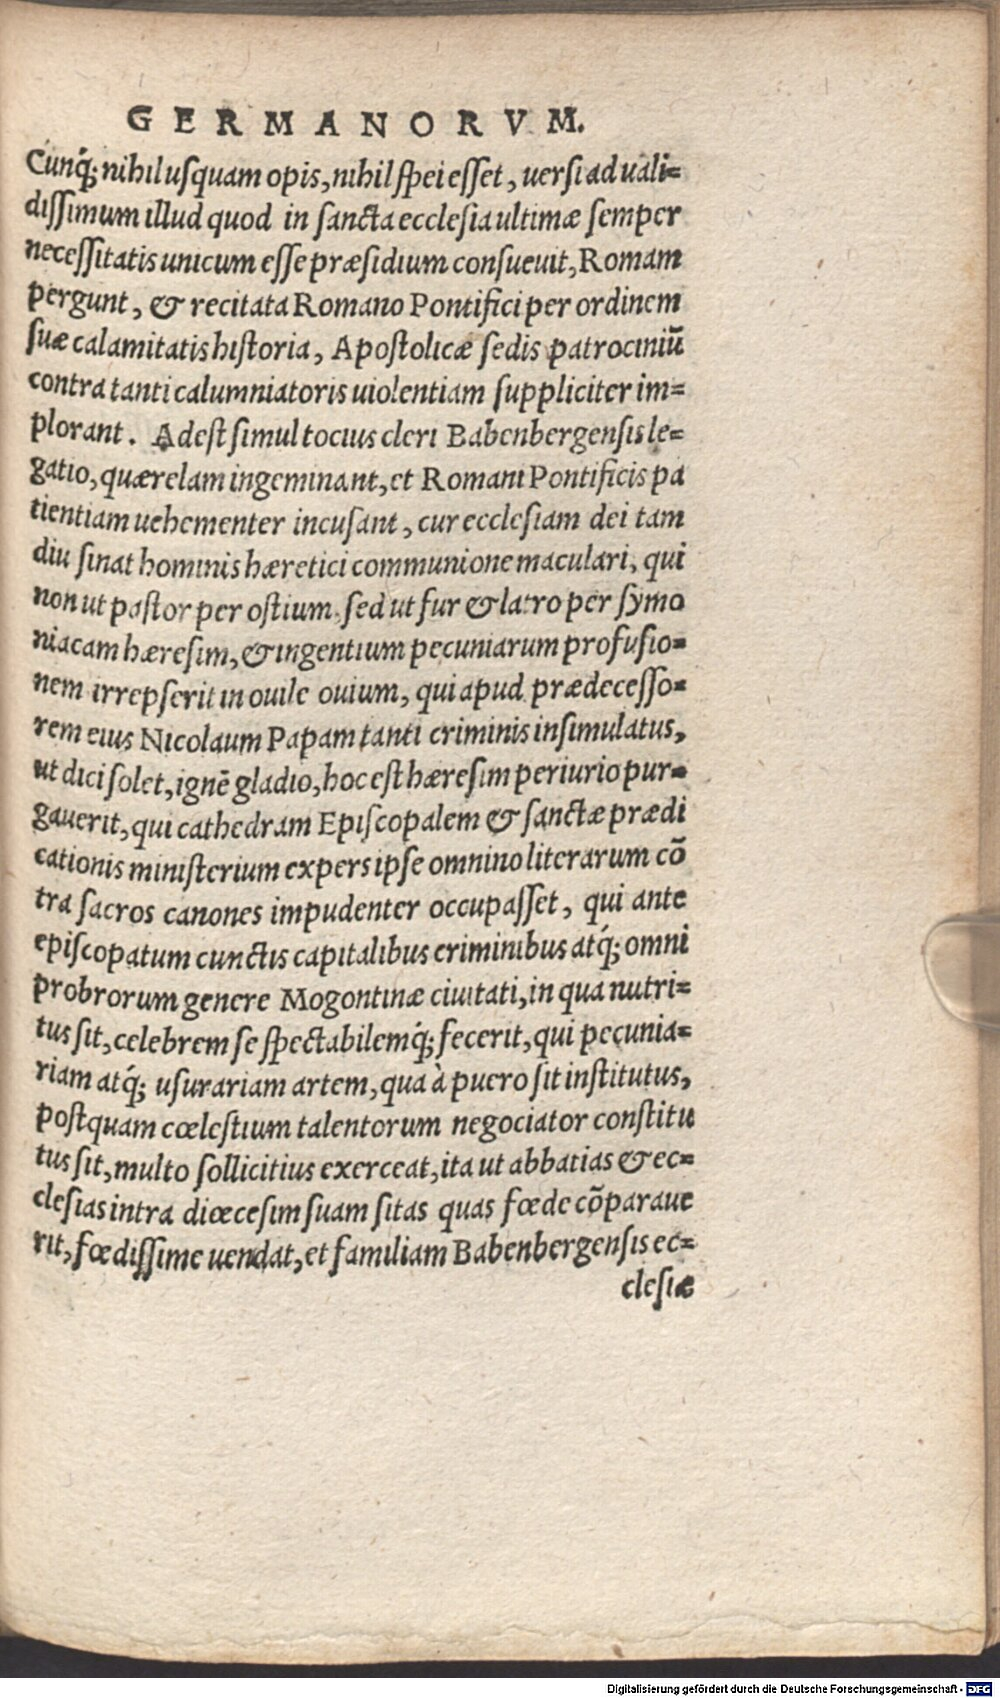 GERMANORVM.
Cunq́; nihil uſquam opis, nihil ſpei eſſet, uerſi ad uali=
diſſimum illud quod in ſancta eccleſia ultimæ ſemper
neceſſitatis unicum eſſe præſidium conſueuit, Romam
pergunt, & recitata Romano Pontifici per ordinem
ſuæ calamitatis hiſtoria, Apoſtolicæ ſedis patrociniū
contra tanti calumniatoris uiolentiam ſuppliciter im=
plorant. Adeſt ſimul tocius cleri Babenbergenſis le=
gatio, quærelam ingeminant, et Romani Pontificis pa
tientiam uehementer incuſant, cur eccleſiam dei tam
diu ſinat hominis hæretici communione maculari, qui
non ut paſtor per oſtium. ſed ut fur & latro per ſymo
niacam hæreſim, & ingentium pecuniarum profuſio=
nem irrepſerit in ouile ouium, qui apud prædeceſſo=
rem eius Nicolaum Papam tanti criminis inſimulatus,
ut dici ſolet, ignē gladio, hoc eſt hæreſim periurio pur=
gauerit, qui cathedram Epiſcopalem & ſanctæ prædi
cationis miniſterium expers ipſe omnino literarum cō
tra ſacros canones impudenter occupaſſet, qui ante
epiſcopatum cunctis capitalibus criminibus atq́; omni
probrorum genere Mogontinæ ciuitati, in qua nutri=
tus ſit, celebrem ſe ſpectabilemq́; fecerit, qui pecunia=
riam atq́; uſurariam artem, qua à puero ſit inſtitutus,
poſtquam cœleſtium talentorum negociator conſtitu
tus ſit, multo ſollicitius exerceat, ita ut abbatias & ec=
cleſias intra diœceſim ſuam ſitas quas fœde cōparaue
rit, fœdiſſime uendat, et familiam Babenbergenſis ec=
cleſiæ
Digitalisierung gefördert durch die Deutsche Forschungsgemeinschaft - DFG